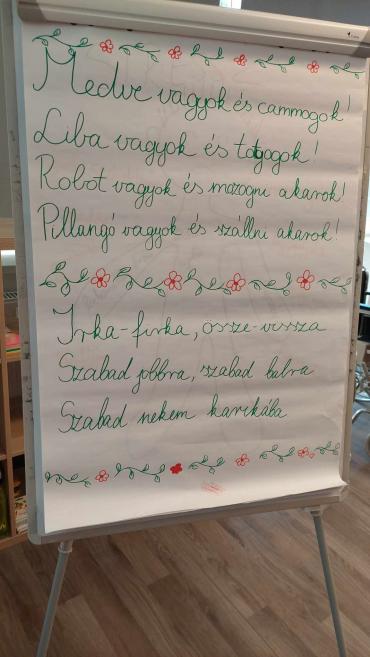 Medve vagyok és cammogok!
Liba vagyok és totyogok!
Robot vagyok és mozogni akarok!
Pillangó vagyok és szállni akarok!
Irka-firka, össze-vissza
Szabad jobbra, szabad balra
Szabad nekem karikába